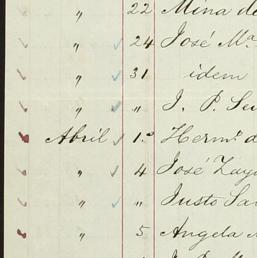 " 22 Mina de
" 24 José Mª
" 31 idem
" " J. P.
Abril 1.º Herm.º d
" 4 José Zay
" " Justo Sa
" 5 Angela